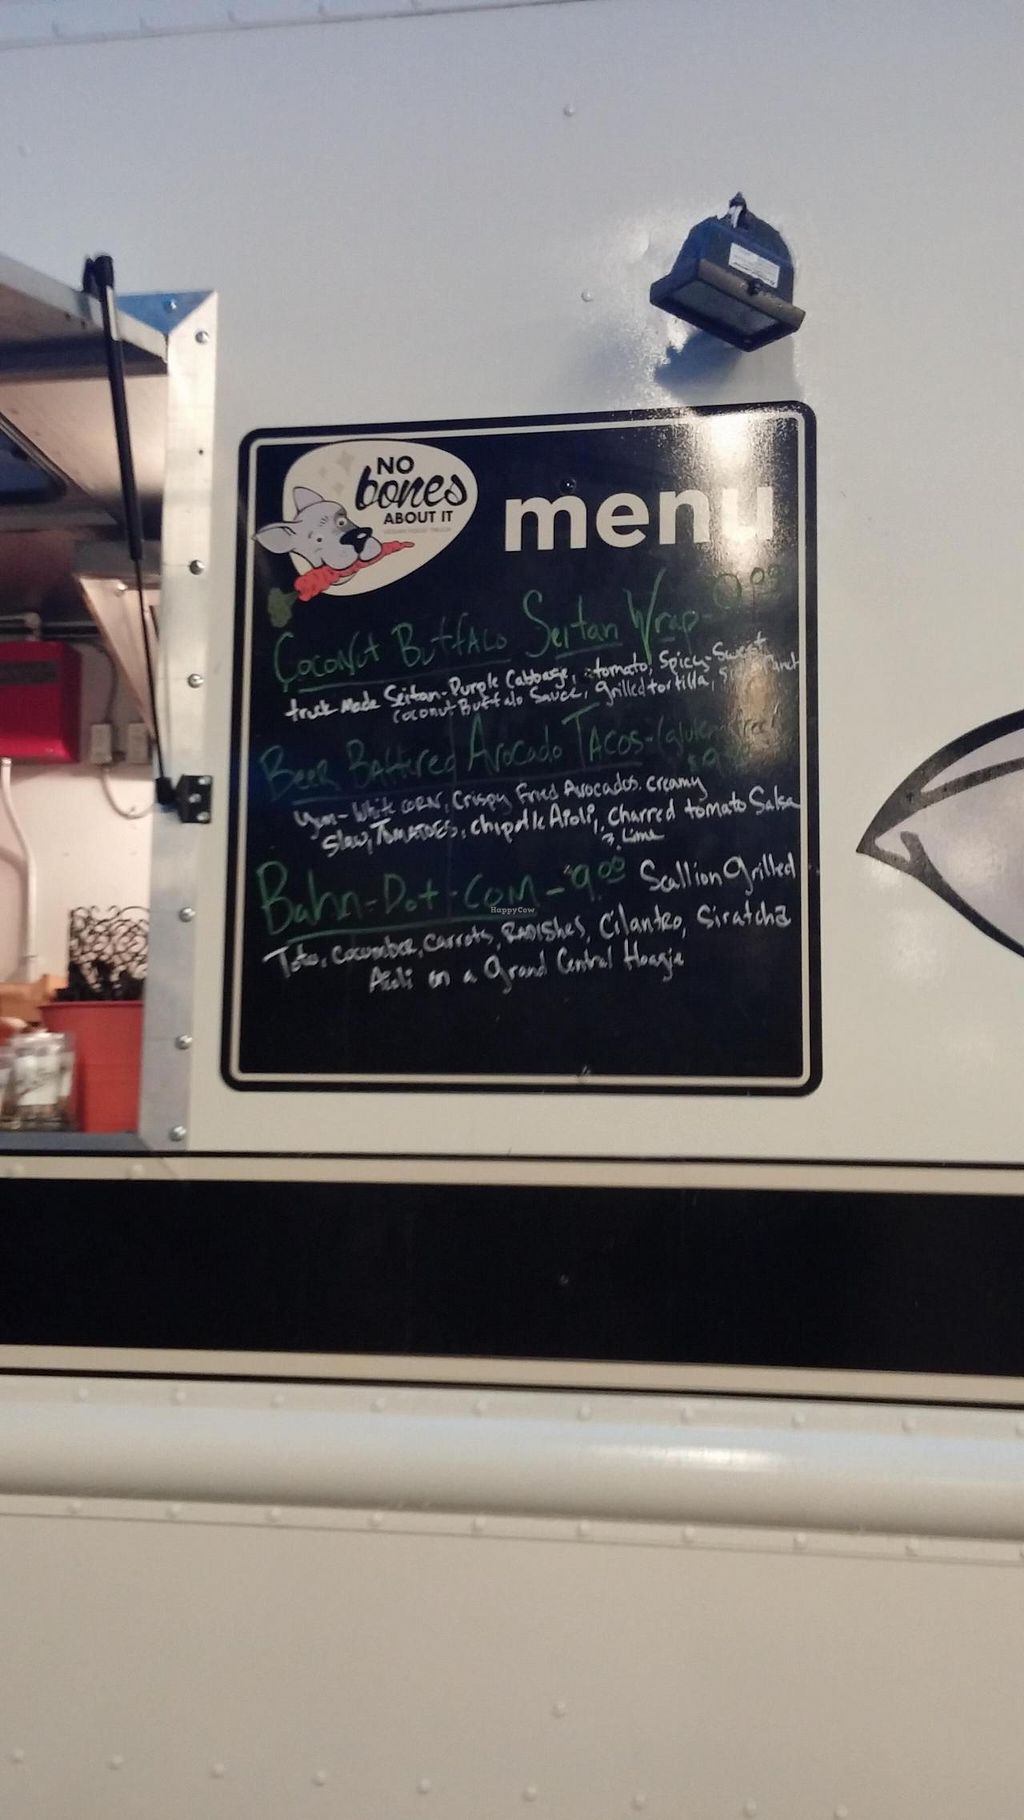 NO
bones
ABOUT IT
VEGAN FOOD TRUCK
menu
Coconut Buffalo Seitan Wrap 9.00
truck Made Seitan-Purple Cabbage, tomato, Spicy-Sweet
Coconut Buffalo Sauce, grilled tortilla, Ranch
Beer Battered Avocado Tacos-(gluten free)
Yum-White CORN, Crispy Fried Avocados, creamy
Slaw, TOMATOES, chipotle Aioli, Charred tomato Salsa
& Lime
Bahn-Dot-Com-9.00 Scallion Grilled
Tofu, Cucumber, Carrots, RADISHES, Cilantro, Siratcha
Aioli on a Grand Central Hoagie
HappyCow